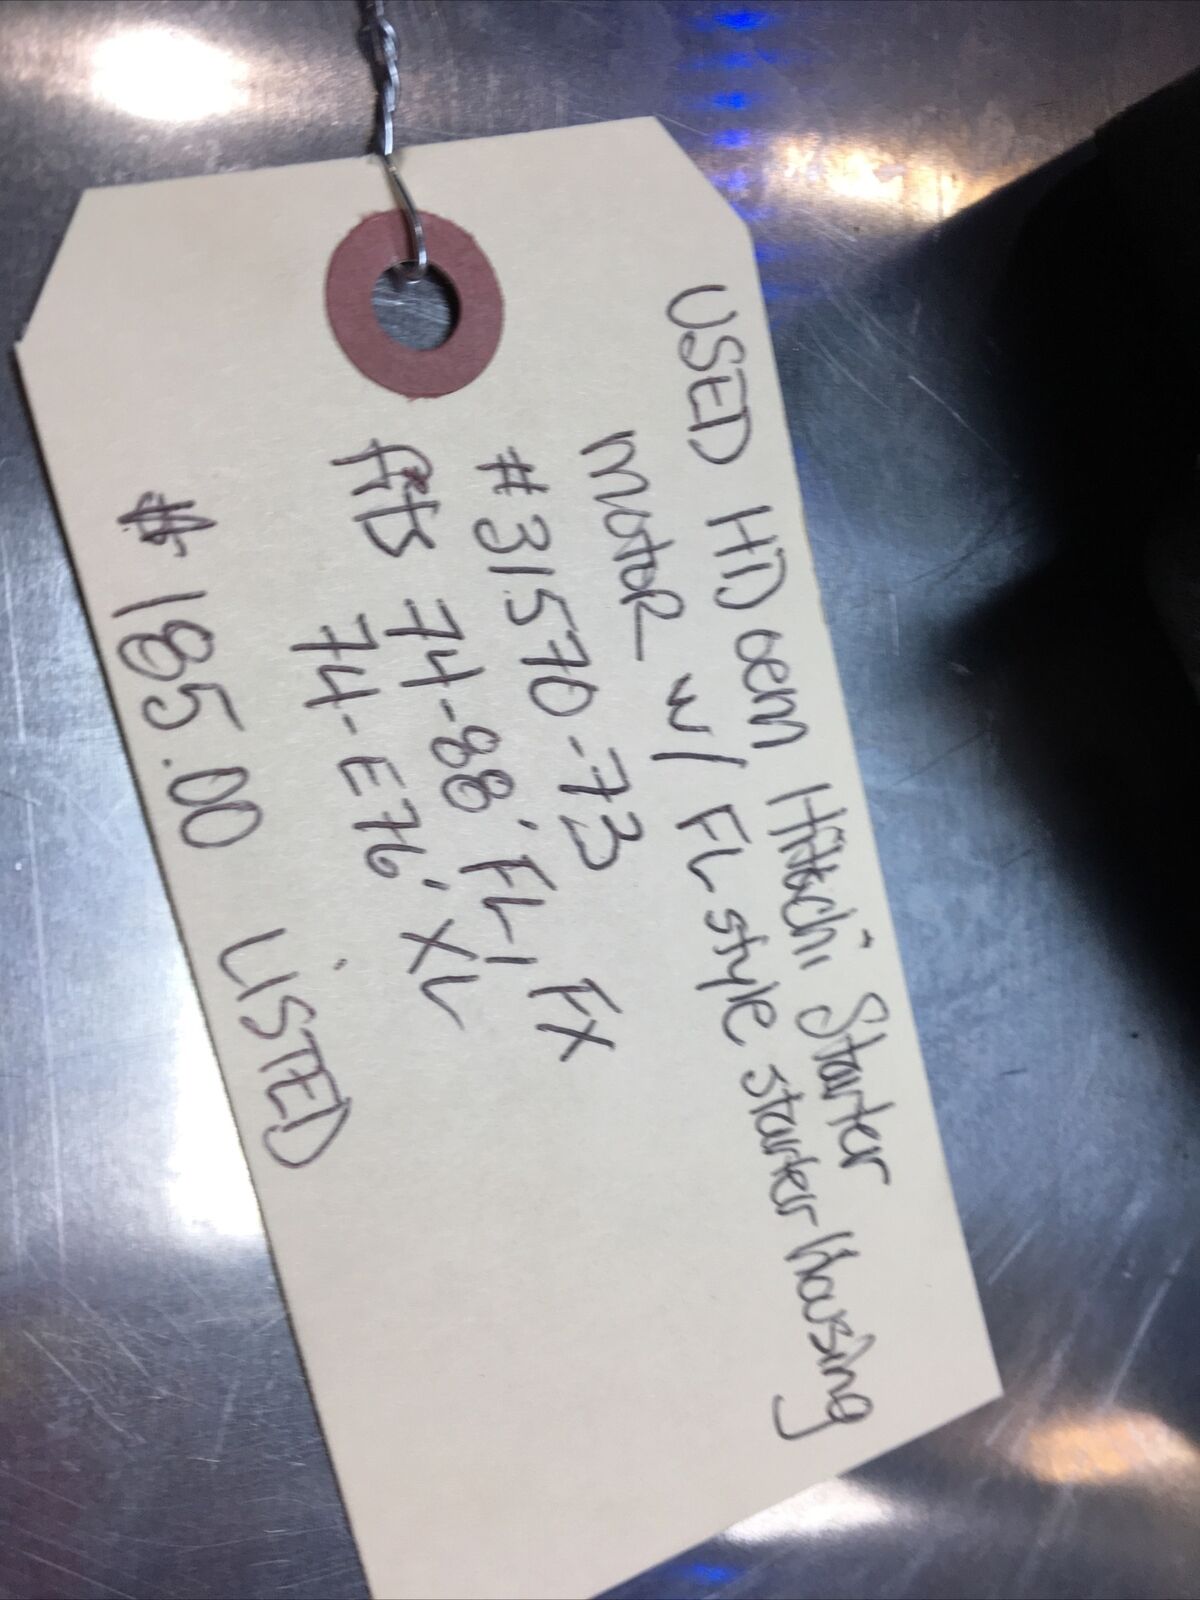 USED HD oem Hitachi Starter
Motor w/ FL style starter Housing
#31570-73
Fits 74-88' FL, FX
74-E76' XL
$185.00 LISTED